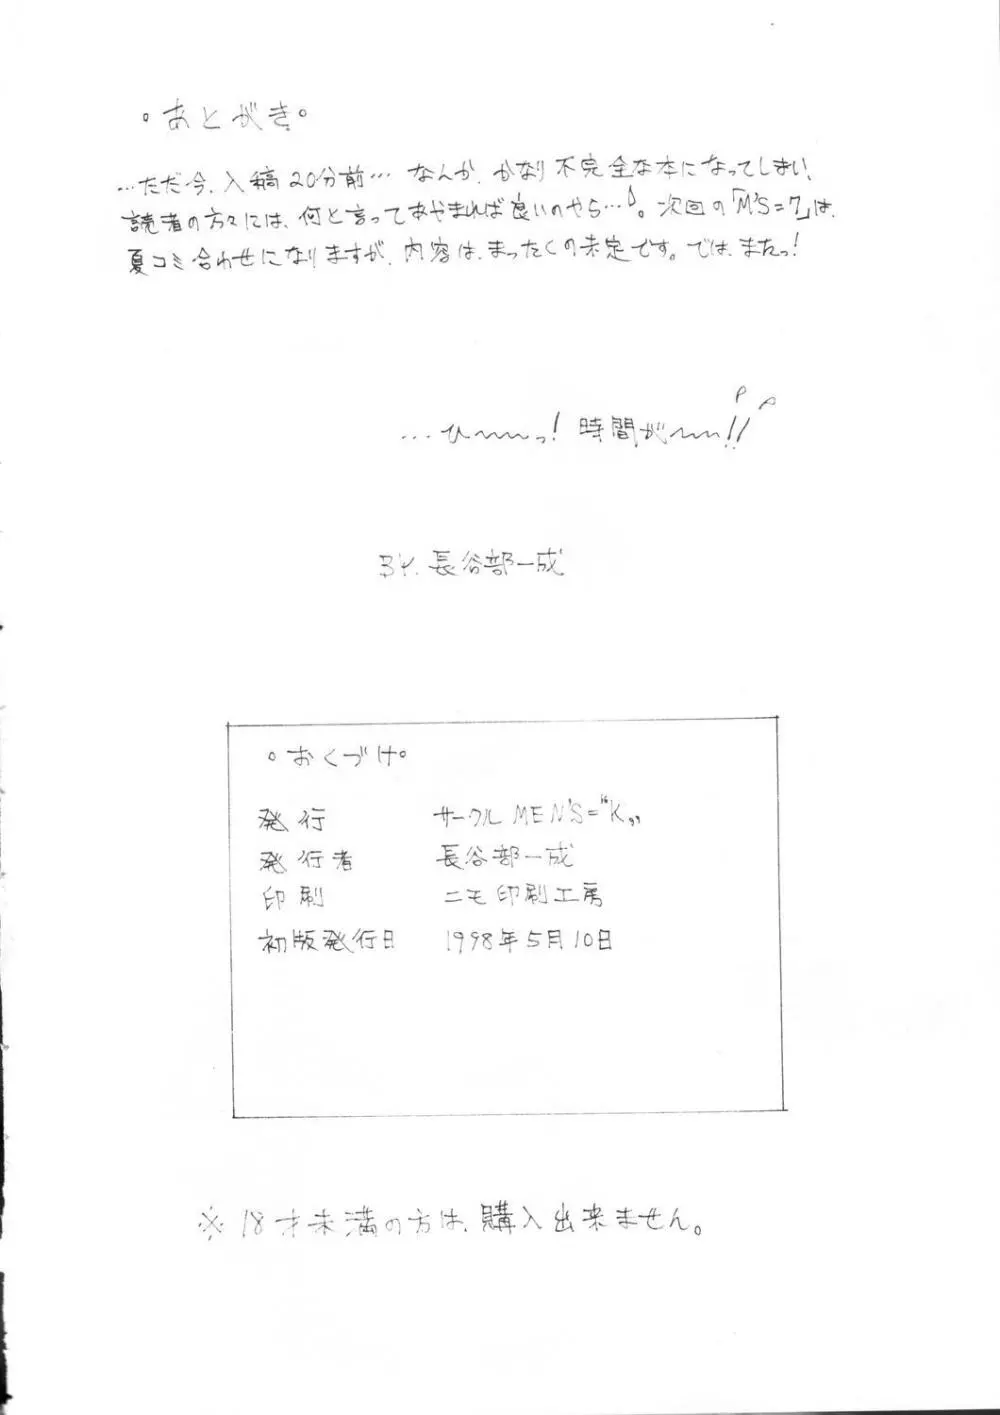 。あとがき。
…ただ今、入稿20分前… なんか、かなり不完全な本になってしまい、
読者の方々には、何と言ってあやまれば良いのやら…。次回の「M'S=7」は、
夏コミ合わせになりますが、内容は、まったくの未定です。では、またっ!
…ひ〜〜〜っ! 時間が〜〜〜!!
BY. 長谷部一成
。おくづけ。
発行 サークル MEN'S="K"
発行者 長谷部一成
印刷 ニモ印刷工房
初版発行日 1998年5月10日
※18才未満の方は、購入出来ません。